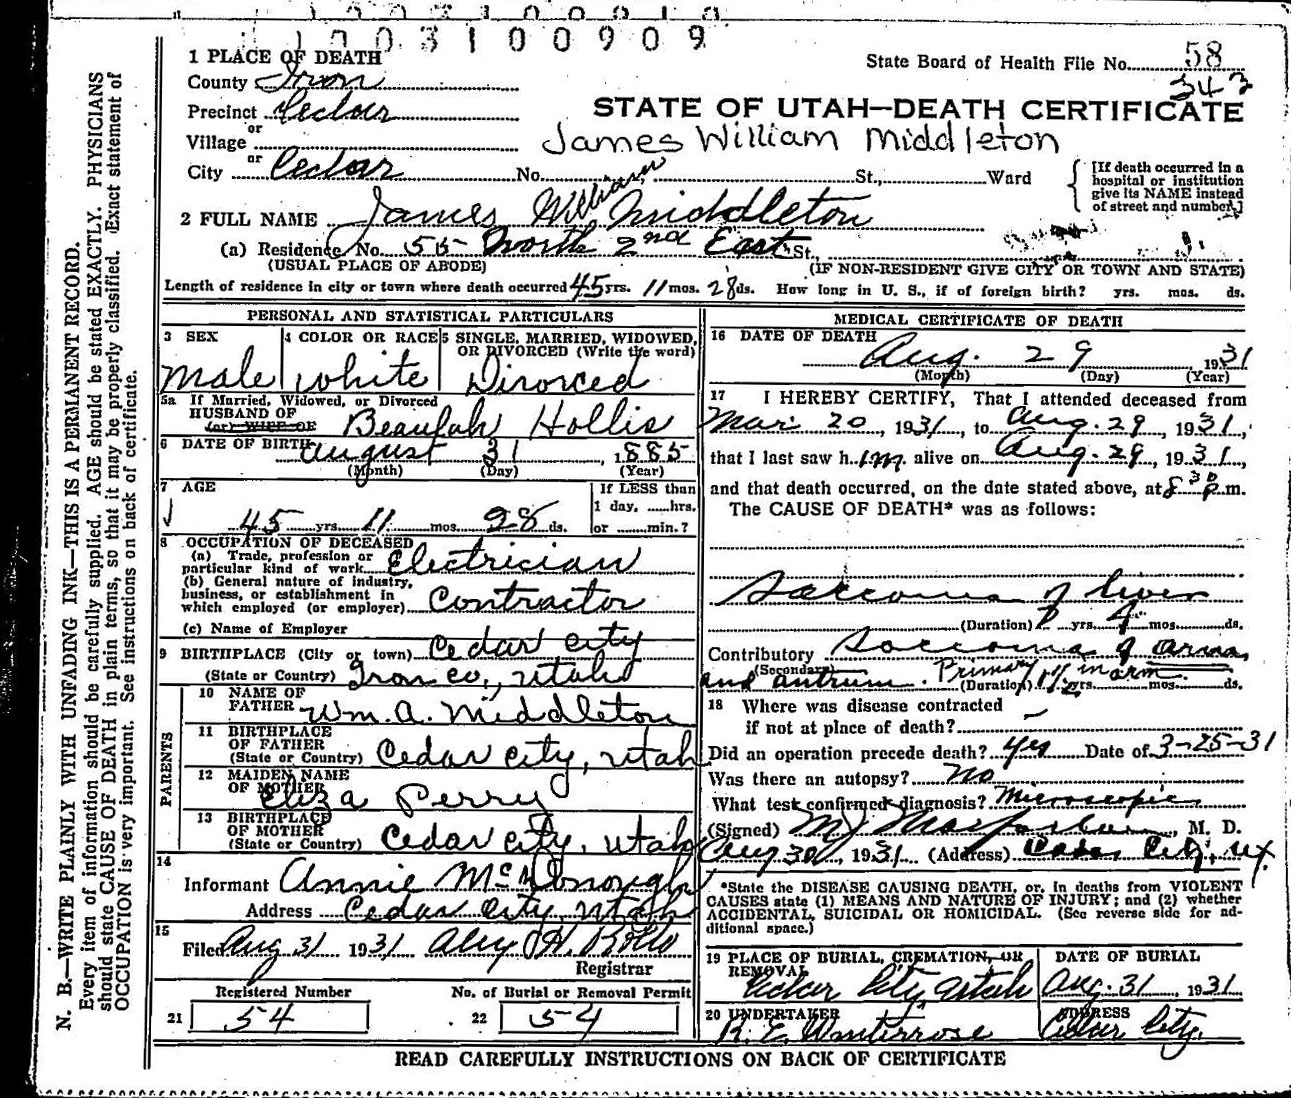 1003100909
1 PLACE OF DEATH
State Board of Health File No. 58
343
County Iron
Precinct Cedar
STATE OF UTAH—DEATH CERTIFICATE
or
Village
James William Middleton
or
City Cedar No. St., Ward
[If death occurred in a hospital or institution give its NAME instead of street and number.]
2 FULL NAME James William Middleton
(a) Residence No. 55 North 2nd East St.,
(USUAL PLACE OF ABODE) (IF NON-RESIDENT GIVE CITY OR TOWN AND STATE)
Length of residence in city or town where death occurred 45 yrs. 11 mos. 28 ds. How long in U. S., if of foreign birth? yrs. mos. ds.
PERSONAL AND STATISTICAL PARTICULARS
3 SEX 4 COLOR OR RACE 5 SINGLE, MARRIED, WIDOWED, OR DIVORCED (Write the word)
Male White Divorced
5a If Married, Widowed, or Divorced
HUSBAND OF
(or) WIFE OF Beaulah Hollis
6 DATE OF BIRTH August 31, 1885
(Month) (Day) (Year)
7 AGE
If LESS than
1 day, ......hrs.
45 yrs. 11 mos. 28 ds. or ......min.?
8 OCCUPATION OF DECEASED
(a) Trade, profession or
particular kind of work Electrician
(b) General nature of industry,
business, or establishment in
which employed (or employer) Contractor
(c) Name of Employer
9 BIRTHPLACE (City or town) Cedar City
(State or Country) Iron Co., Utah
PARENTS
10 NAME OF
FATHER Wm. A. Middleton
11 BIRTHPLACE
OF FATHER
(State or Country) Cedar City, Utah
12 MAIDEN NAME
OF MOTHER Eliza Perry
13 BIRTHPLACE
OF MOTHER
(State or Country) Cedar City, Utah
14
Informant Annie McDonough
Address Cedar City Utah
15
Filed Aug 31 1931
Registrar
Registered Number No. of Burial or Removal Permit
21 54 22 54
MEDICAL CERTIFICATE OF DEATH
16 DATE OF DEATH
Aug. 29 1931
(Month) (Day) (Year)
17 I HEREBY CERTIFY, That I attended deceased from
Mar 20, 1931, to Aug. 29, 1931,
that I last saw him alive on Aug. 29, 1931,
and that death occurred, on the date stated above, at 8 30 p.m.
The CAUSE OF DEATH* was as follows:
Sarcoma of liver
(Duration) yrs. 4 mos. ds.
Contributory Sarcoma of arm,
(Secondary)
and antrum. Primary in arm.
(Duration) 1½ yrs. mos. ds.
18 Where was disease contracted
if not at place of death?
Did an operation precede death? Yes Date of 3-25-31
Was there an autopsy? No
What test confirmed diagnosis? Microscopic
(Signed) M. D.
Aug 30, 1931 (Address) Cedar City, Ut.
*State the DISEASE CAUSING DEATH, or, in deaths from VIOLENT
CAUSES state (1) MEANS AND NATURE OF INJURY; and (2) whether
ACCIDENTAL, SUICIDAL OR HOMICIDAL. (See reverse side for ad-
ditional space.)
19 PLACE OF BURIAL, CREMATION, OR REMOVAL DATE OF BURIAL
Cedar City, Utah Aug. 31, 1931
20 UNDERTAKER ADDRESS
R. E. Winterrose Cedar City.
READ CAREFULLY INSTRUCTIONS ON BACK OF CERTIFICATE
N. B.—WRITE PLAINLY WITH UNFADING INK—THIS IS A PERMANENT RECORD.
Every item of information should be carefully supplied. AGE should be stated EXACTLY. PHYSICIANS
should state CAUSE OF DEATH in plain terms, so that it may be properly classified. Exact statement of
OCCUPATION is very important. See instructions on back of certificate.